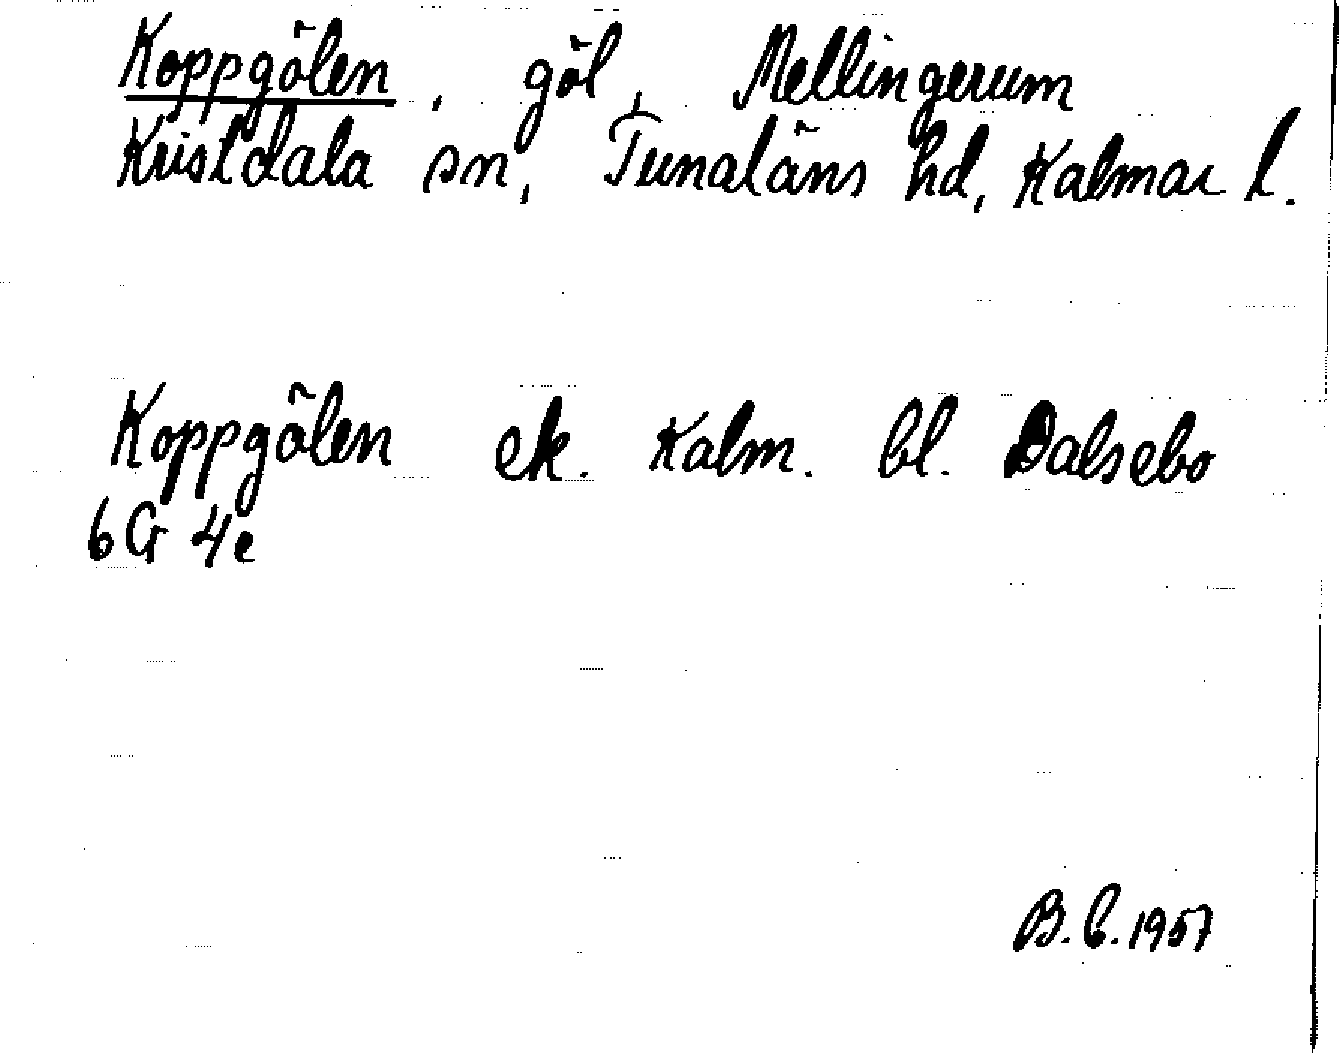 Koppgölen, göl, Mellingerum
Kristdala sn, Tunaläns hd, Kalmar l.
Koppgölen ek. Kalm. bl. Dalsebo
6G 4e
B.C. 1957